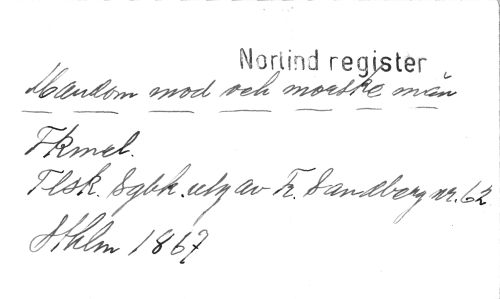 Norlind register
Mandom mod och morske män
Fkmel.
Flsk. Sgbk. utg av Fr. Sandberg nr. 62
Sthlm 1867